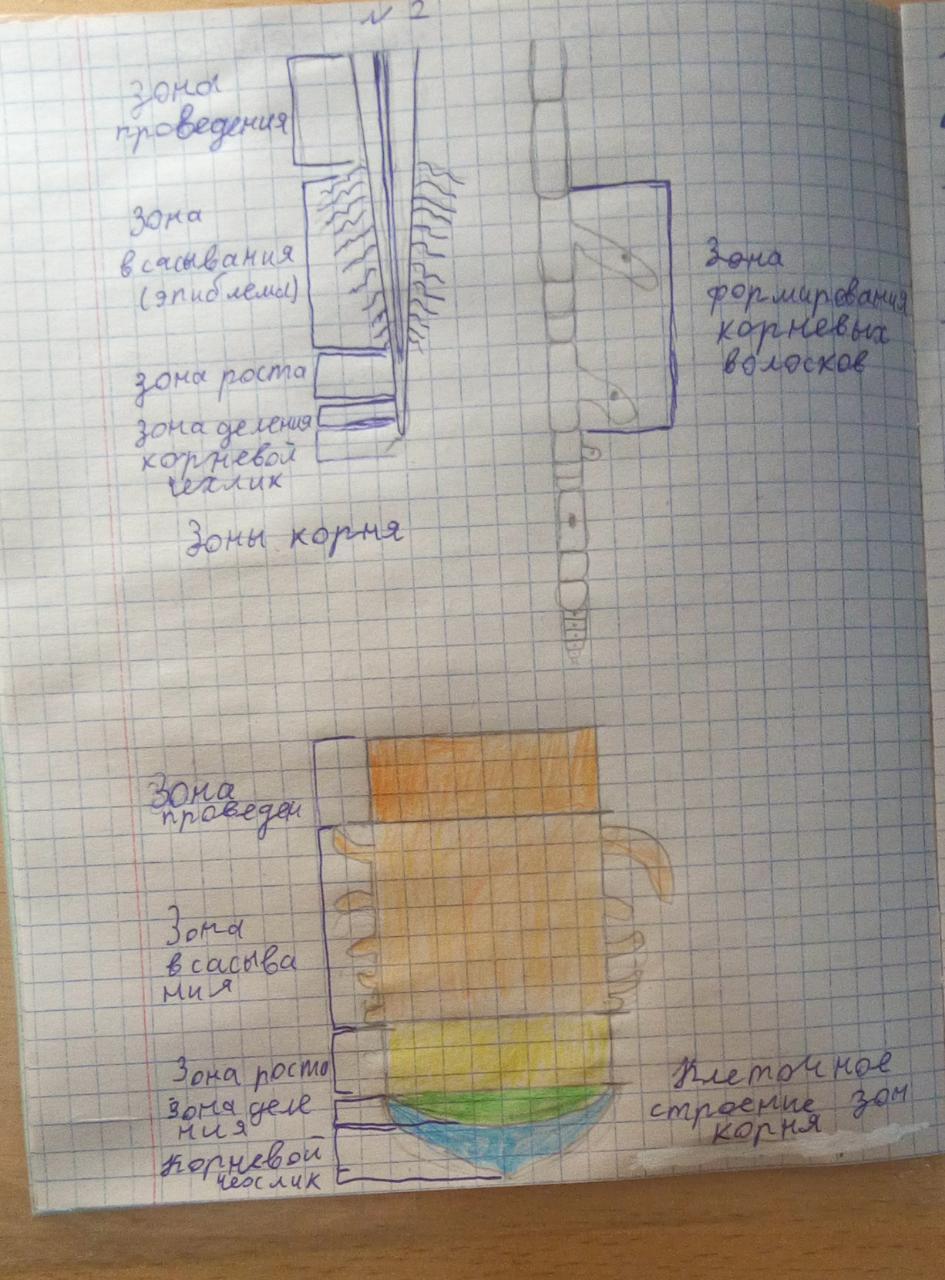 №2
Зона
проведения
Зона
всасывания
(эпиблема)
зона роста
зона деления
корневой
чехлик
Зоны корня
Зона
формирования
корневых
волосков
Зона
проведен
Зона
всасыва
ния
Зона роста
зона деле
ния
Корневой
чехлик
Клеточное
строение зон
корня